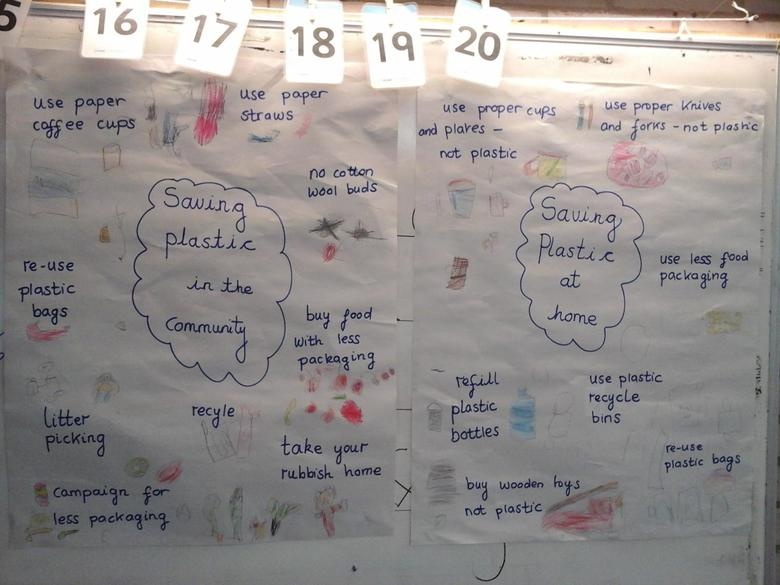 5
16
17
18
19
20
use paper
coffee cups
use paper
straws
no cotton
wool buds
Saving
plastic
in the
Community
re-use
plastic
bags
buy food
with less
packaging
litter
picking
recyle
take your
rubbish home
Campaign for
less packaging
use proper cups
and plates -
not plastic
use proper knives
and forks - not plastic
Saving
Plastic
at
home
use less food
packaging
refill
plastic
bottles
use plastic
recycle
bins
re-use
plastic bags
buy wooden toys
not plastic